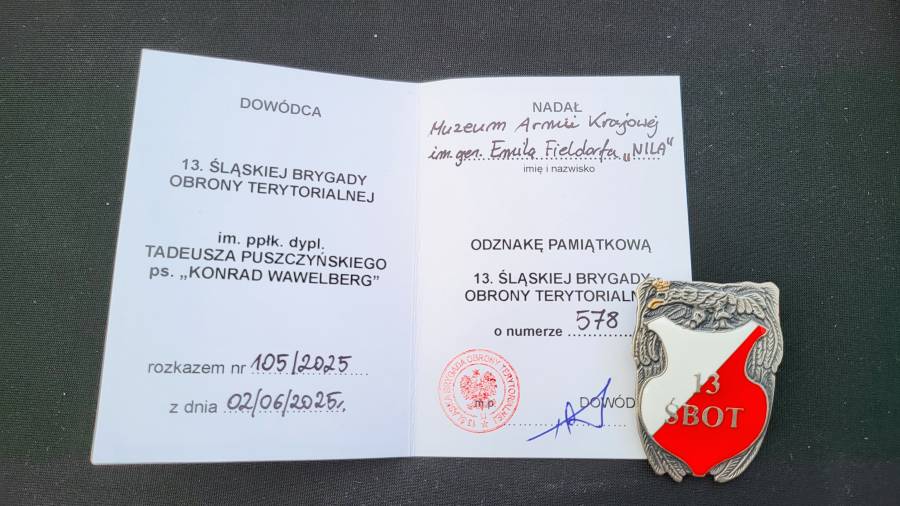 DOWÓDCA
13. ŚLĄSKIEJ BRYGADY
OBRONY TERYTORIALNEJ
im. ppłk. dypl.
TADEUSZA PUSZCZYŃSKIEGO
ps. „KONRAD WAWELBERG”
rozkazem nr 105/2025
z dnia 02/06/2025r.
NADAŁ
Muzeum Armii Krajowej
im. gen. Emila Fieldorfa „NILA"
imię i nazwisko
ODZNAKĘ PAMIĄTKOWĄ
13. ŚLĄSKIEJ BRYGADY
OBRONY TERYTORIALN
o numerze 578
13 ŚLĄSKA BRYGADA OBRONY TERYTORIALNEJ
m.p.
DOWÓD
13
ŚBOT